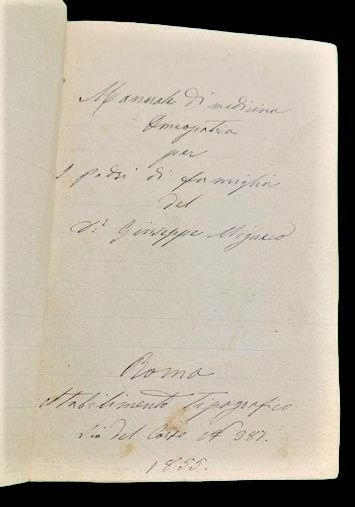 Manuale di medicina
Omeopatica
per
I padri di famiglia
del
Dr. Giuseppe Mignaco
Roma
Stabilimento Tipografico
Via del Corso N 387.
1855.